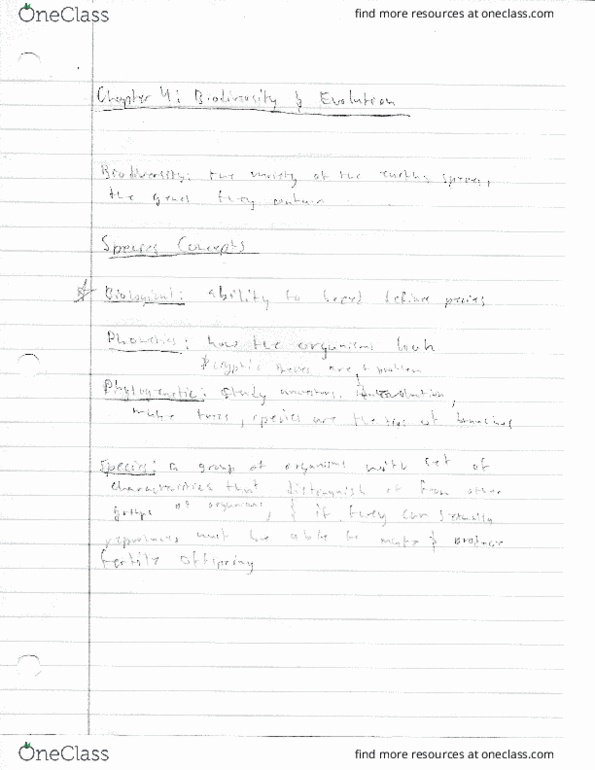 OneClass
find more resources at oneclass.com
Chapter 4: Biodiversity & Evolution
Biodiversity: the variety of the earths species,
the genes they contain
Species Concepts
Biological: ability to breed define species
: how the organisms look
* cryptic species are a problem
Phylogenetic: study ancestors, evolution,
make trees, species are the tips of branches
Species: a group of organisms with set of
characteristics that distinguish it from other
groups of organisms, & if they can sexually
must be able to mate & produce
fertile offspring
OneClass
find more resources at oneclass.com